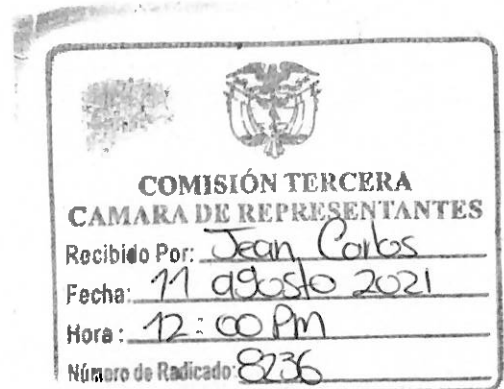 COMISIÓN TERCERA
CAMARA DE REPRESENTANTES
Recibido Por: Jean Carlos
Fecha: 11 agosto 2021
Hora: 12:00 Pm
Número de Radicado: 8236